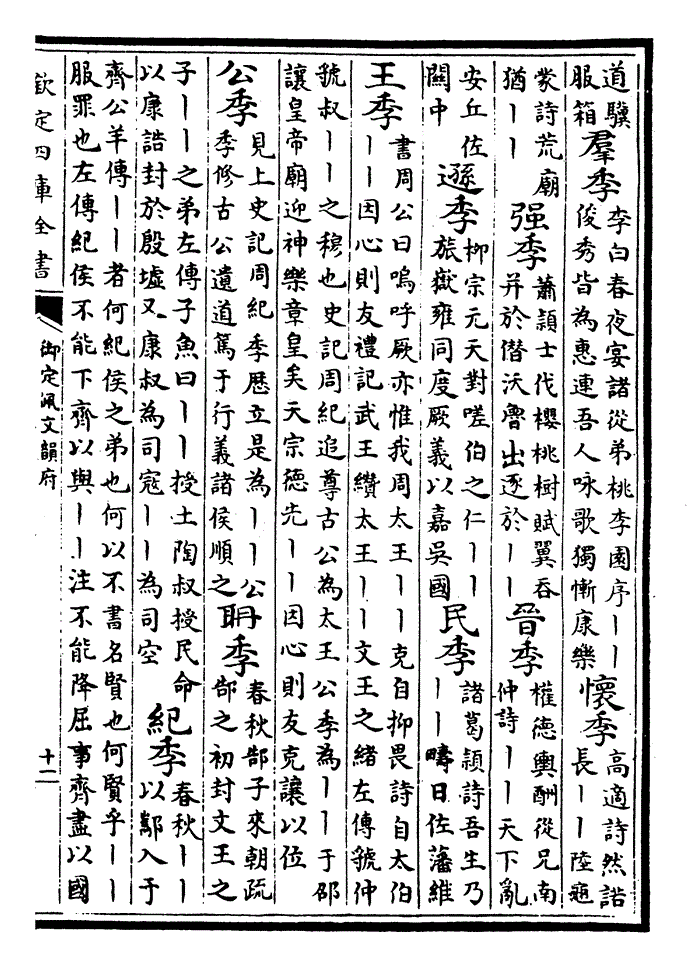 道驥服箱羣季李白春夜宴諸從弟桃李園序丨丨俊秀皆為惠連吾人咏歌獨慚康樂懷季高適詩然諾長丨丨陸
蒙詩荒廟猶丨丨强季蕭頴士伐櫻桃樹賦翼吞并於僭沃魯出逐於丨丨晉季權德輿酬從兄南仲詩丨丨天下亂
安丘佐關中遜季柳宗元天對嗟伯之仁丨丨旅嶽雍同度厥義以嘉吳國民季諸葛頴詩吾生乃丨丨疇日佐藩維
王季書周公曰嗚呼厥亦惟我周太王丨丨克自抑畏詩自太伯丨丨因心則友禮記武王纘太王丨丨文王之緒左傳虢仲
虢叔丨丨之穆也史記周紀追尊古公為太王公季為丨丨于邵讓皇帝廟迎神樂章皇矣天宗德先丨丨因心則友克讓以位
公季見上史記周紀季歷立是為丨丨公季修古公遺道篤于行義諸侯順之聃季春秋郜子來朝疏郜之初封文王之
子丨丨之弟左傳子魚曰丨丨授土陶叔授民命以康誥封於殷墟又康叔為司寇丨丨為司空紀季春秋丨丨以酅入于
齊公羊傳丨丨者何紀侯之弟也何以不書名賢也何賢乎丨丨服罪也左傳紀侯不能下齊以與丨丨注不能降屈事齊盡以國
欽定四庫全書
御定佩文韻府
十二